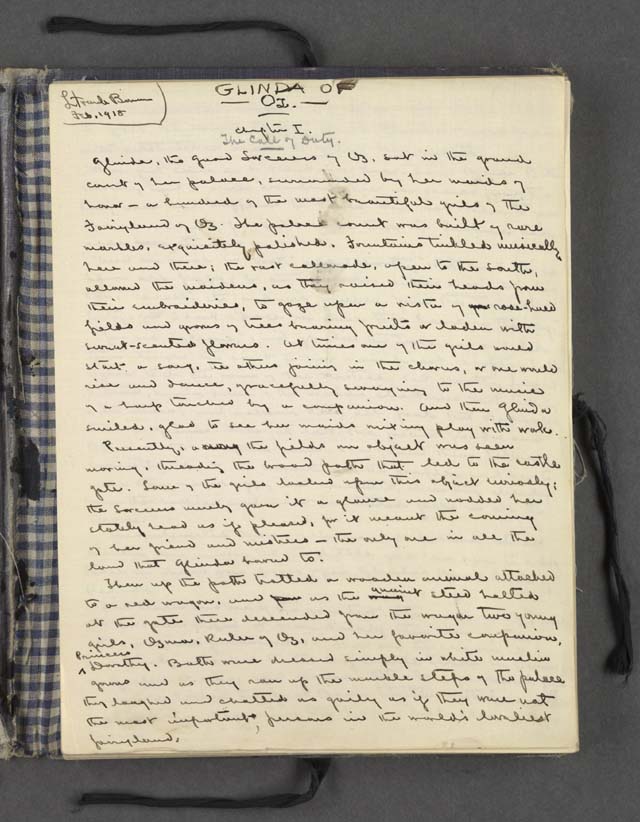 L. Frank Baum
Feb, 1918
GLINDA OF
OZ.
Chapter I.
The Call of Duty.
Glinda, the good Sorceress of Oz, sat in the grand
court of her palace, surrounded by her maids of
honor — a hundred of the most beautiful girls of the
Fairyland of Oz. The palace court was built of rare
marbles, exquisitely polished. Fountains tinkled musically
here and there; the vast colonnade, open to the south,
allowed the maidens, as they raised their heads from
their embroideries, to gaze upon a vista of rose-hued
fields and groves of trees bearing fruits or laden with
sweet-scented flowers. At times one of the girls would
start a song, the others joining in the chorus, or one would
rise and dance, gracefully swaying to the music
of a harp touched by a companion. And then Glinda
smiled, glad to see her maids mixing play with work.
Presently, among the fields an object was seen
moving, threading the broad path that led to the castle
gate. Some of the girls looked upon this object curiously;
the Sorceress merely gave it a glance and nodded her
stately head as if pleased, for it meant the coming
of her friend and mistress — the only one in all the
land that Glinda bowed to.
Then up the path trotted a wooden animal attached
to a red wagon, and as the quaint steed halted
at the gate there descended from the wagon two young
girls, Ozma, Ruler of Oz, and her favorite companion,
Princess Dorothy. Both were dressed simply in white muslin
gowns and as they ran up the marble steps of the palace
they laughed and chatted as gaily as if they were not
the most important persons in the world's loveliest
fairyland.